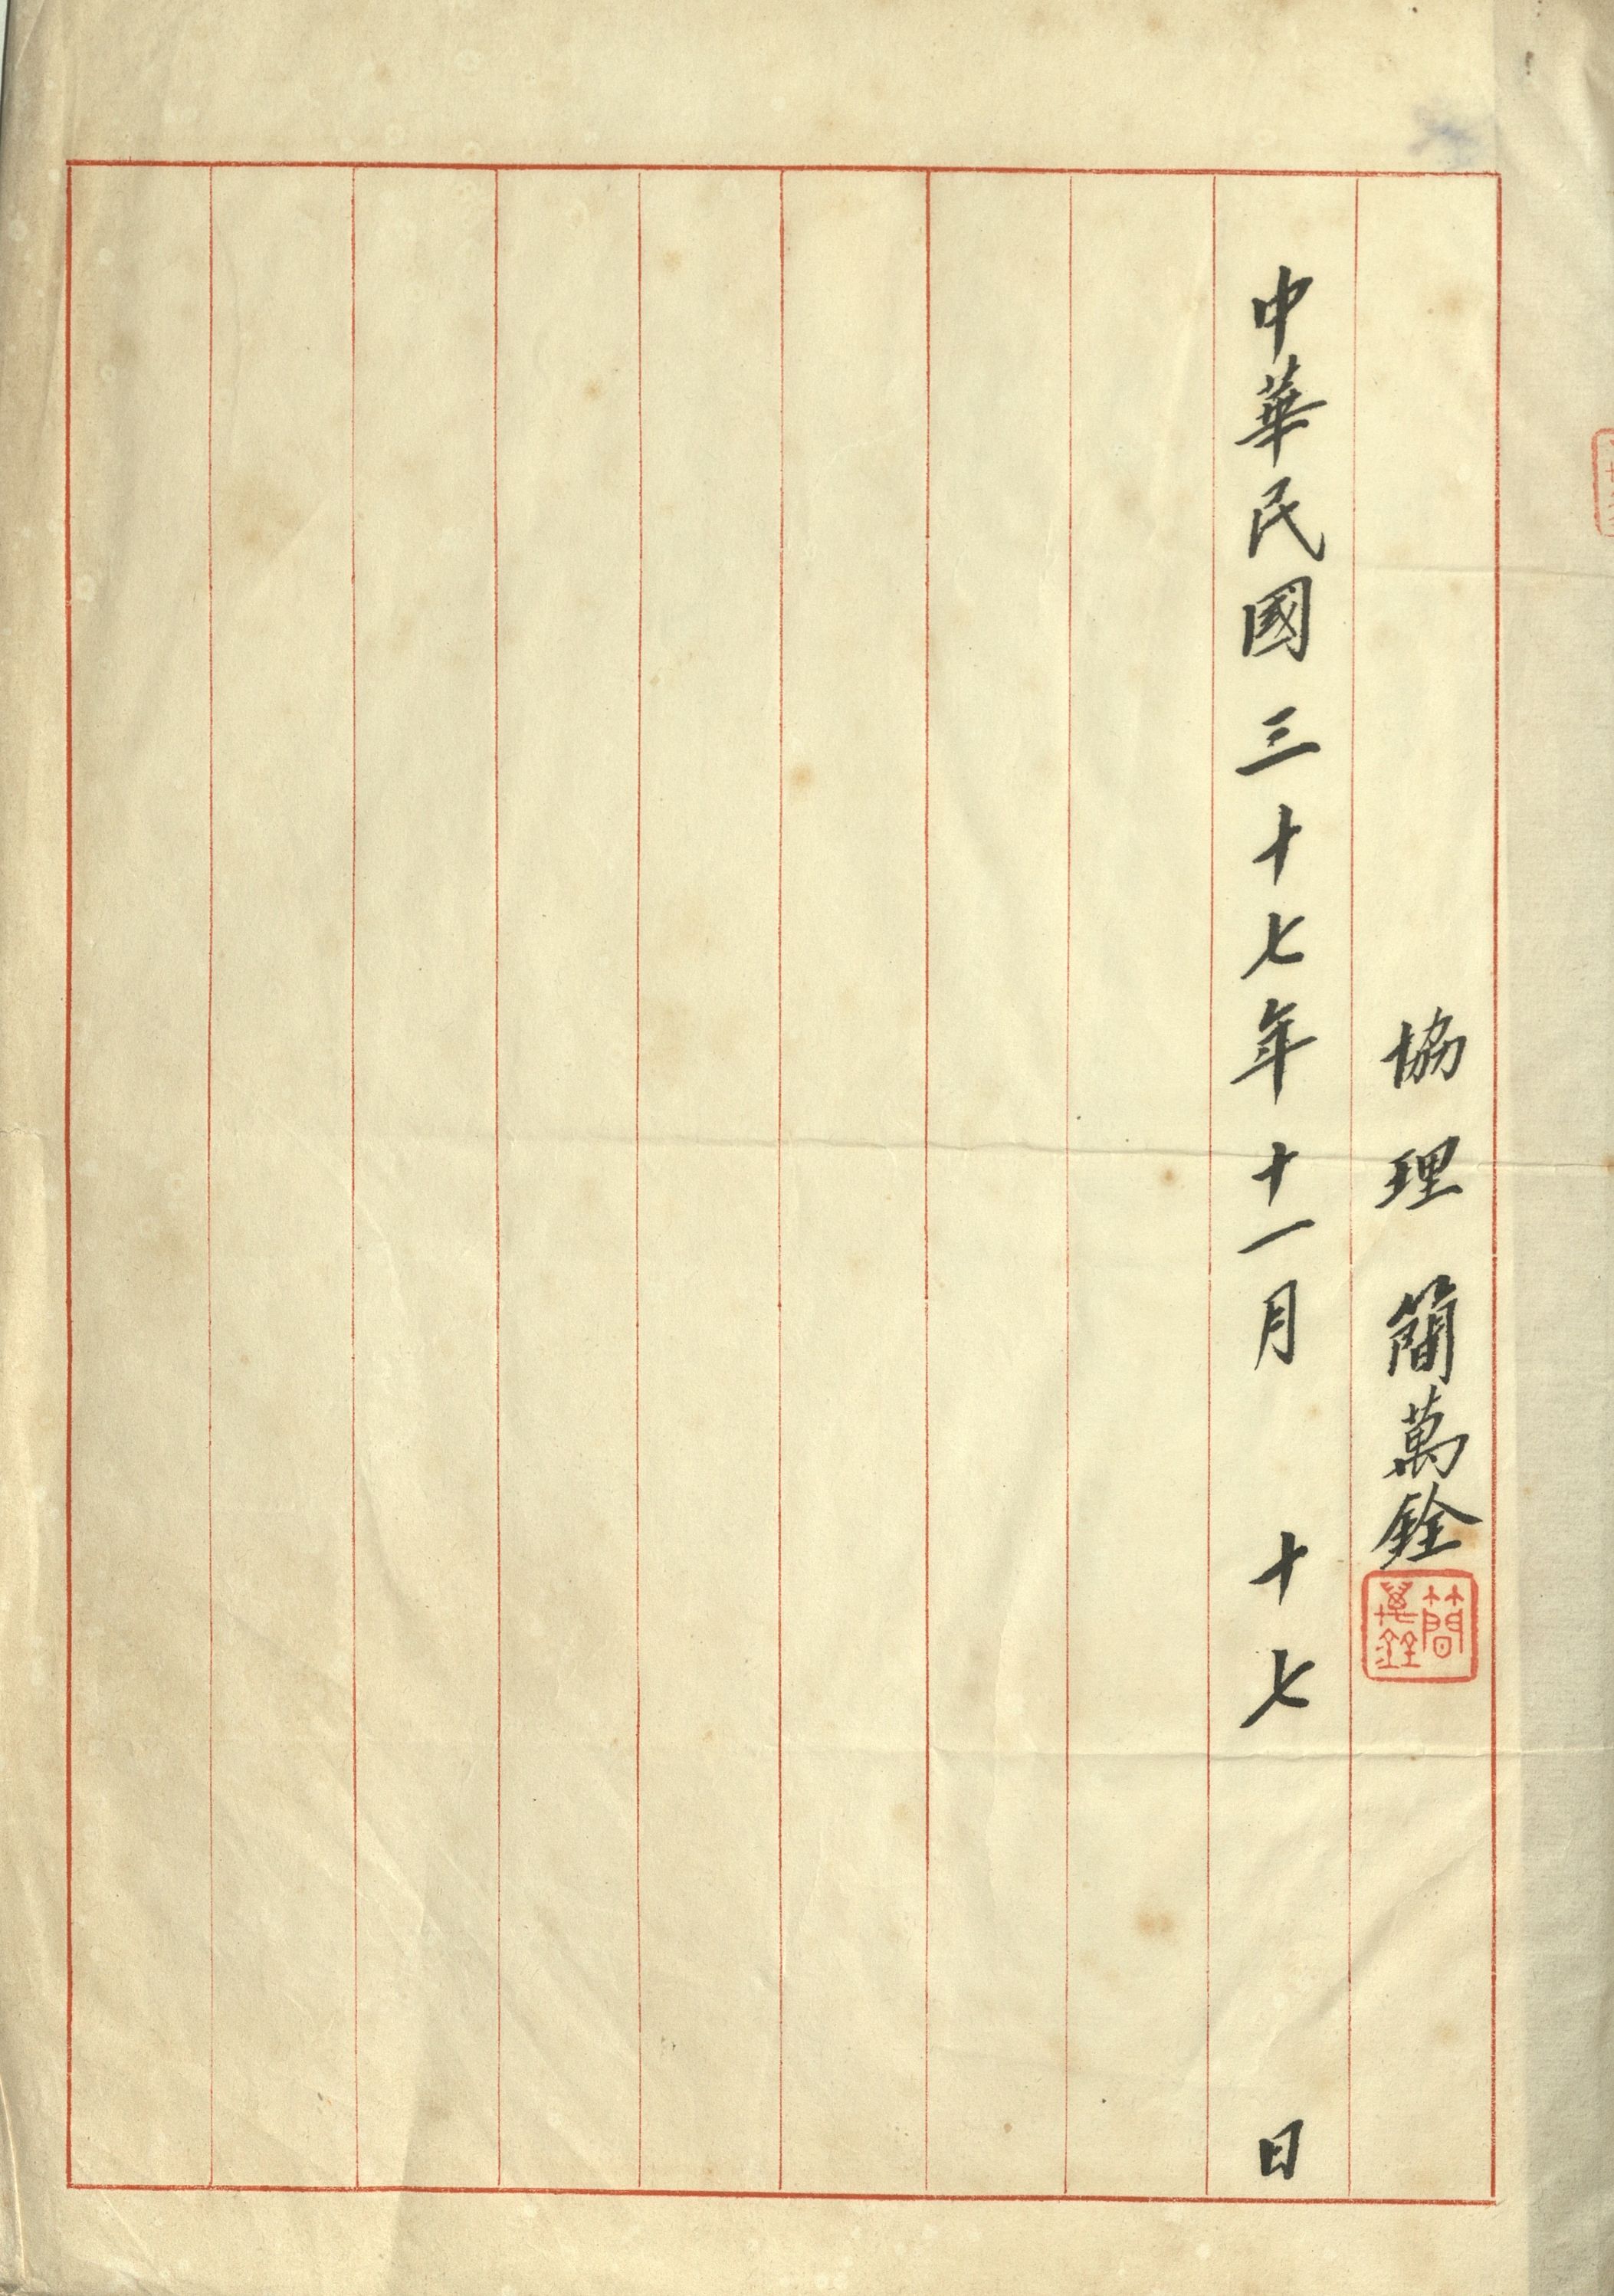 協理 簡萬銓
簡萬銓
中華民國三十七年十一月 十七 日